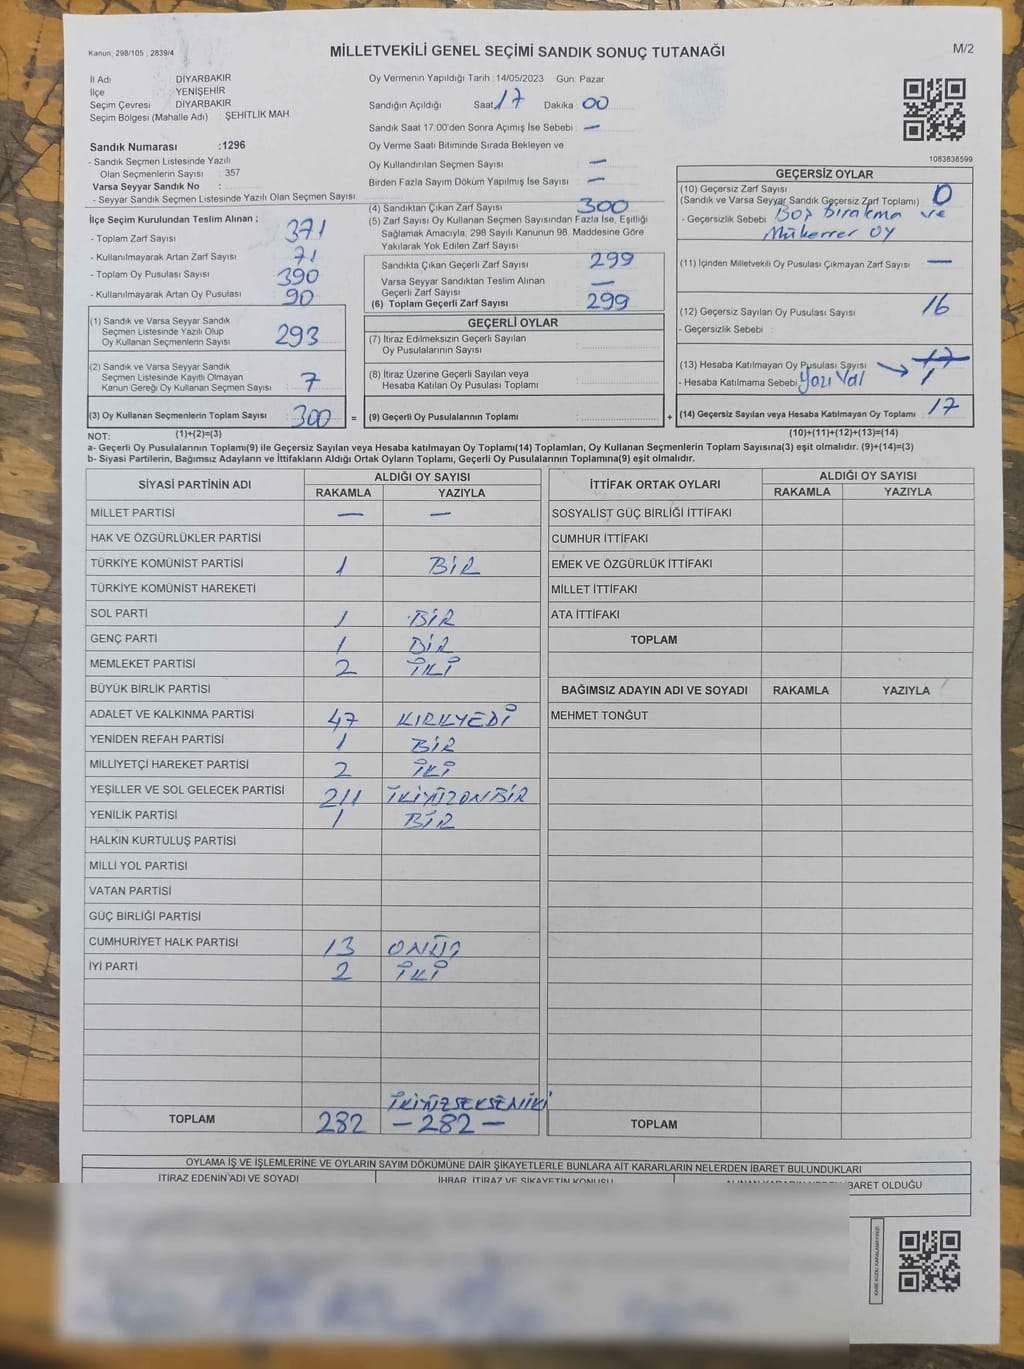 Kanun, 298/105 , 2839/4
MİLLETVEKİLİ GENEL SEÇİMİ SANDIK SONUÇ TUTANAĞI
M/2
İl Adı DİYARBAKIR
İlçe YENİŞEHİR
Seçim Çevresi DİYARBAKIR
Seçim Bölgesi (Mahalle Adı) : ŞEHİTLİK MAH.
Sandık Numarası :1296
- Sandık Seçmen Listesinde Yazılı
Olan Seçmenlerin Sayısı : 357
Varsa Seyyar Sandık No :
- Seyyar Sandık Listelerinde Yazılı Olan Seçmen Sayısı
Oy Vermenin Yapıldığı Tarih :14/05/2023 Gün: Pazar
Sandığın Açıldığı Saat 17 Dakika 00
Sandık Saat 17:00'den Sonra Açımış İse Sebebi : —
Oy Verme Saati Bitiminde Sırada Bekleyen ve
Oy Kullandırılan Seçmen Sayısı —
Birden Fazla Sayım Döküm Yapılmış İse Sayısı —
1083838599
İlçe Seçim Kurulundan Teslim Alınan ;
- Toplam Zarf Sayısı 371
- Kullanılmayarak Artan Zarf Sayısı 71
- Toplam Oy Pusulası Sayısı 390
- Kullanılmayarak Artan Oy Pusulası 90
(1) Sandık ve Varsa Seyyar Sandık
Seçmen Listesinde Yazılı Olup
Oy Kullanan Seçmenlerin Sayısı 293
(2) Sandık ve Varsa Seyyar Sandık
Seçmen Listesinde Kayıtlı Olmayan
Kanun Gereği Oy Kullanan Seçmen Sayısı 7
(3) Oy Kullanan Seçmenlerin Toplam Sayısı 300
=
(1)+(2)=(3)
(4) Sandıktan Çıkan Zarf Sayısı 300
(5) Zarf Sayısı Oy Kullanan Seçmen Sayısından Fazla İse, Eşitliği
Sağlamak Amacıyla, 298 Sayılı Kanunun 98. Maddesine Göre
Yakılarak Yok Edilen Zarf Sayısı
Sandıkta Çıkan Geçerli Zarf Sayısı 299
Varsa Seyyar Sandıktan Teslim Alınan —
Geçerli Zarf Sayısı
(6) Toplam Geçerli Zarf Sayısı 299
GEÇERLİ OYLAR
(7) İtiraz Edilmeksizin Geçerli Sayılan
Oy Pusulalarının Sayısı
(8) İtiraz Üzerine Geçerli Sayılan veya
Hesaba Katılan Oy Pusulası Toplamı
(9) Geçerli Oy Pusulalarının Toplamı
+
GEÇERSİZ OYLAR
(10) Geçersiz Zarf Sayısı 0
(Sandık ve Varsa Seyyar Sandık Geçersiz Zarf Toplamı)
- Geçersizlik Sebebi Boş Bırakma ve
Mükerrer oy
(11) İçinden Milletvekili Oy Pusulası Çıkmayan Zarf Sayısı —
(12) Geçersiz Sayılan Oy Pusulası Sayısı 16
- Geçersizlik Sebebi :
(13) Hesaba Katılmayan Oy Pusulası Sayısı 17
- Hesaba Katılmama Sebebi Yazı Var 1
(14) Geçersiz Sayılan veya Hesaba Katılmayan Oy Toplamı 17
(10)+(11)+(12)+(13)=(14)
NOT:
a- Geçerli Oy Pusulalarının Toplamı(9) ile Geçersiz Sayılan veya Hesaba katılmayan Oy Toplamı(14) Toplamları, Oy Kullanan Seçmenlerin Toplam Sayısına(3) eşit olmalıdır. (9)+(14)=(3)
b- Siyasi Partilerin, Bağımsız Adayların ve İttifakların Aldığı Ortak Oyların Toplamı, Geçerli Oy Pusulalarının Toplamına(9) eşit olmalıdır.
SİYASİ PARTİNİN ADI ALDIĞI OY SAYISI
RAKAMLA YAZIYLA
MİLLET PARTİSİ — —
HAK VE ÖZGÜRLÜKLER PARTİSİ
TÜRKİYE KOMÜNİST PARTİSİ 1 BİR
TÜRKİYE KOMÜNİST HAREKETİ
SOL PARTİ 1 BİR
GENÇ PARTİ 1 BİR
MEMLEKET PARTİSİ 2 İKİ
BÜYÜK BİRLİK PARTİSİ
ADALET VE KALKINMA PARTİSİ 47 KIRKYEDİ
YENİDEN REFAH PARTİSİ 1 BİR
MİLLİYETÇİ HAREKET PARTİSİ 2 İKİ
YEŞİLLER VE SOL GELECEK PARTİSİ 211 İKİYÜZONBİR
YENİLİK PARTİSİ 1 BİR
HALKIN KURTULUŞ PARTİSİ
MİLLİ YOL PARTİSİ
VATAN PARTİSİ
GÜÇ BİRLİĞİ PARTİSİ
CUMHURİYET HALK PARTİSİ 13 ONÜÇ
İYİ PARTİ 2 İKİ
İKİYÜZSEKSENİKİ
TOPLAM 282 – 282 –
İTTİFAK ORTAK OYLARI ALDIĞI OY SAYISI
RAKAMLA YAZIYLA
SOSYALİST GÜÇ BİRLİĞİ İTTİFAKI
CUMHUR İTTİFAKI
EMEK VE ÖZGÜRLÜK İTTİFAKI
MİLLET İTTİFAKI
ATA İTTİFAKI
TOPLAM
BAĞIMSIZ ADAYIN ADI VE SOYADI RAKAMLA YAZIYLA
MEHMET TONĞUT
TOPLAM
OYLAMA İŞ VE İŞLEMLERİNE VE OYLARIN SAYIM DÖKÜMÜNE DAİR ŞİKAYETLERLE BUNLARA AİT KARARLARIN NELERDEN İBARET BULUNDUKLARI
İTİRAZ EDENİN ADI VE SOYADI İHBAR, İTİRAZ VE ŞİKAYETİN KONUSU İBARET OLDUĞU